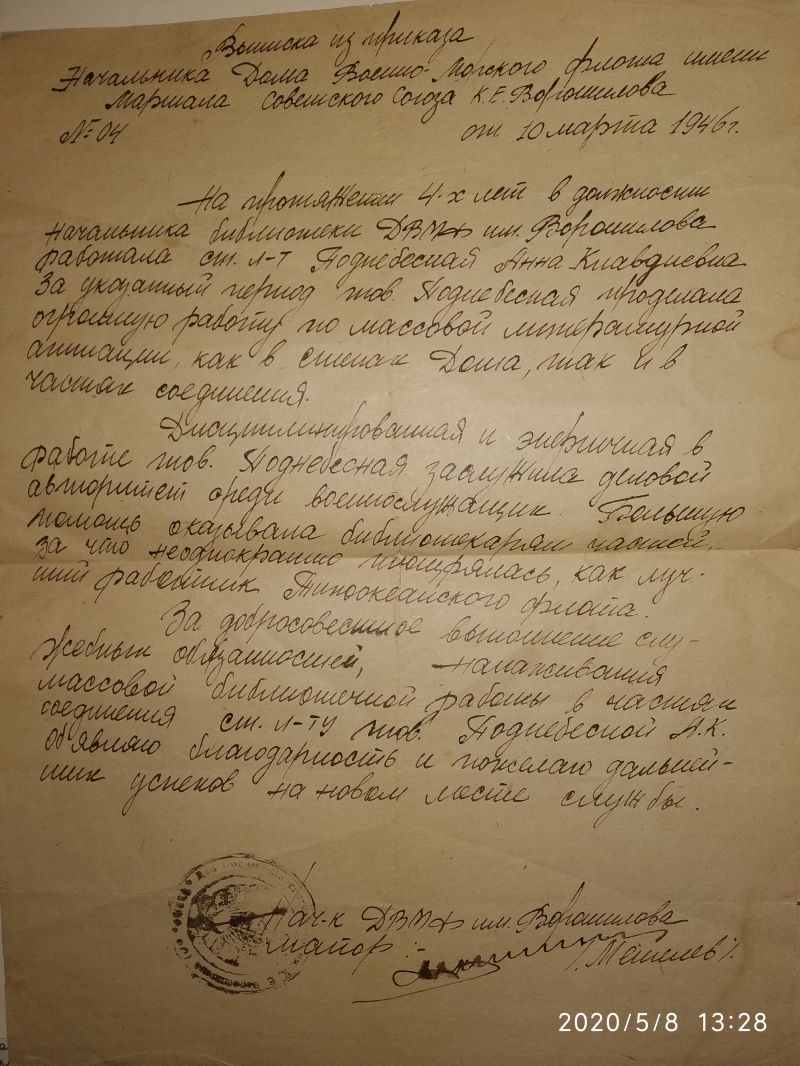 Выписка из приказа
Начальника Дома Военно-Морского флота имени
Маршала Советского Союза К.Е. Ворошилова
№ 04 от 10 марта 1946 г.
На протяжении 4-х лет в должности
начальника библиотеки ДВМФ им. Ворошилова
работала ст. л-т Поднебесная Анна Клавдиевна
За указанный период тов. Поднебесная проделала
огромную работу по массовой литературной
агитации, как в стенах Дома, так и в
частях соединения.
Дисциплинированная и энергичная в
работе тов. Поднебесная заслужила деловой
авторитет среди военнослужащих. Большую
помощь оказывала библиотекарям частей,
за что неоднократно поощрялась, как луч-
ший работник Тихоокеанского флота.
За добросовестное выполнение слу-
жебных обязанностей, налаживания
массовой библиотечной работы в частях
соединения ст. л-ту тов. Поднебесной А.К.
объявляю благодарность и пожелаю дальней-
ших успехов на новом месте службы.
Нач-к ДВМФ им. Ворошилова
майор :-
2020/5/8 13:28